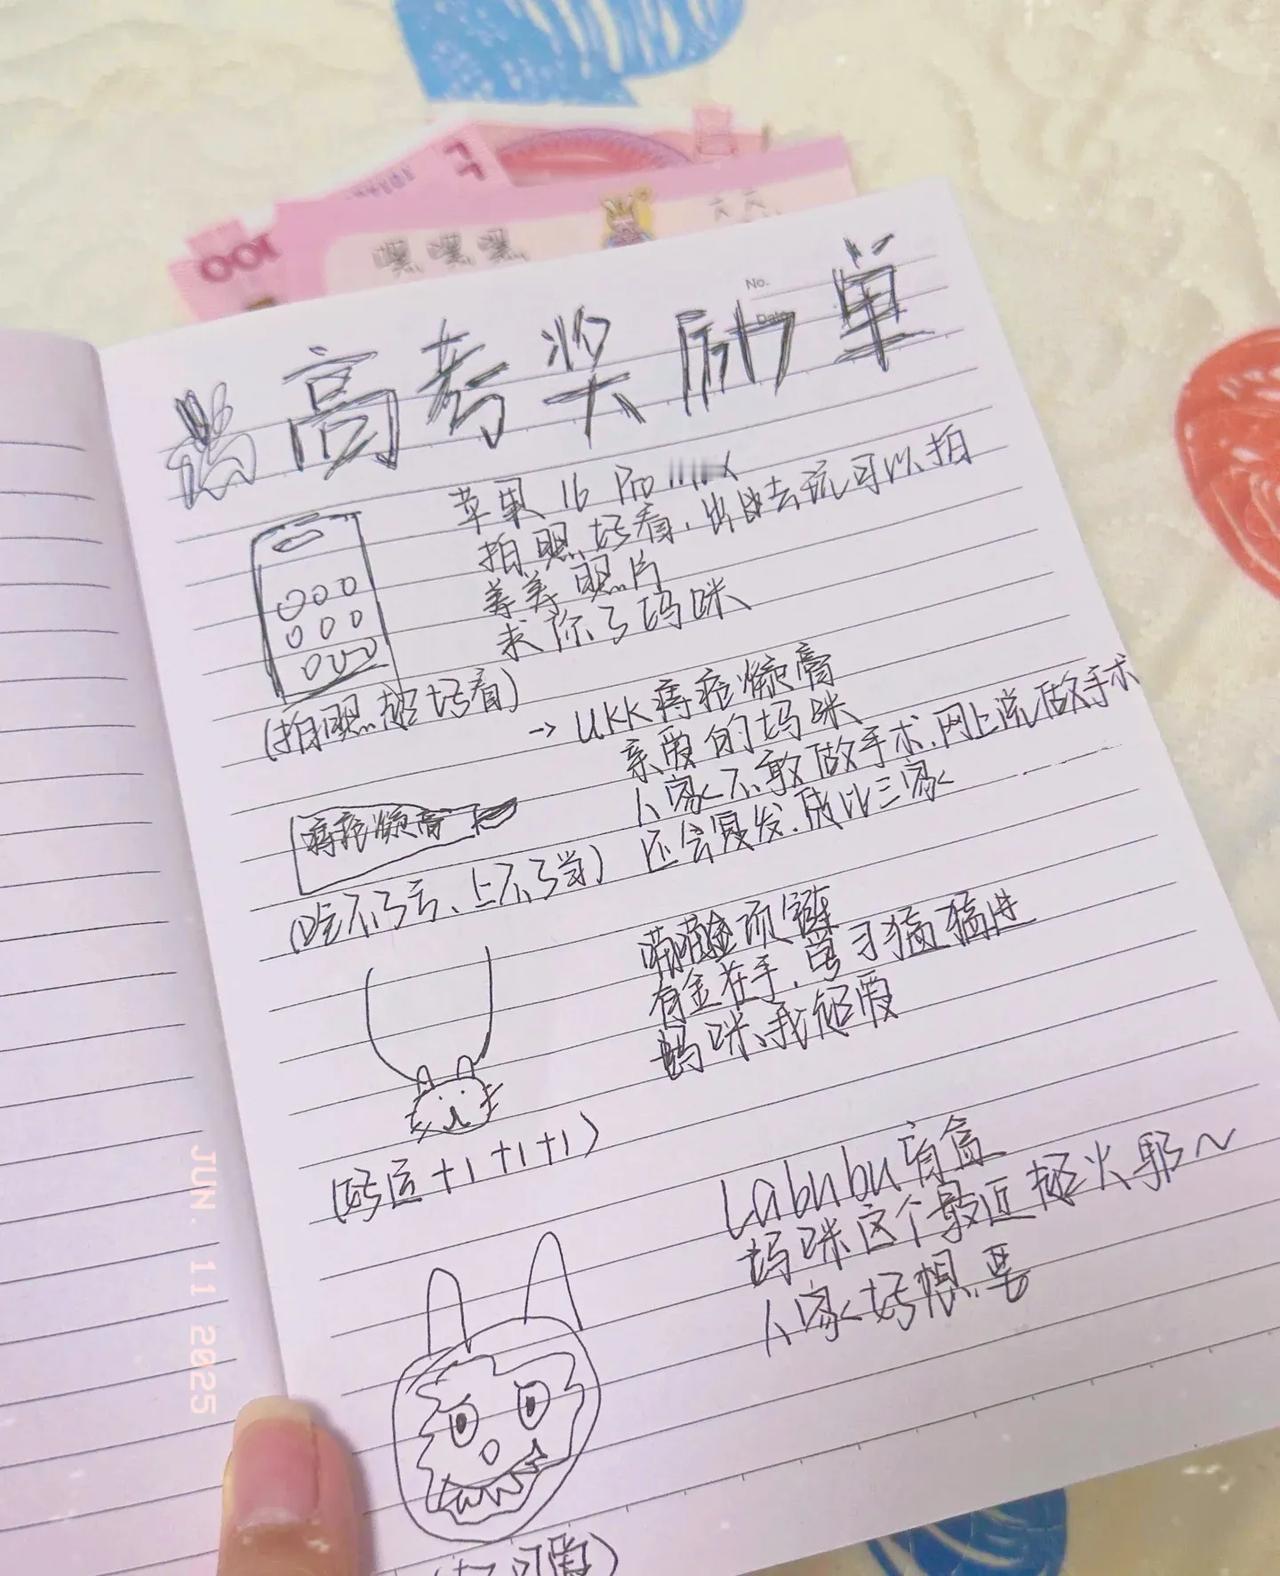 100
嘿嘿嘿
No.
Date
高考奖励单
苹果 16 Pro max
拍照好看，出去玩可以拍
美美照片
求你了妈咪
(拍照超好看)
→ UKK痔疮凝膏
亲爱的妈咪
人家不敢做手术，网上说做手术
还会复发，所以三家
痔疮凝膏
(吃不了亏、上不了当)
喵喵金项链
有金在手，学习猛猛进
妈咪、我超爱
(好运+1+1+1)
Labubu盲盒
妈咪这个最近超火耶～
人家好想要
可爱)
JUN. 11 2025